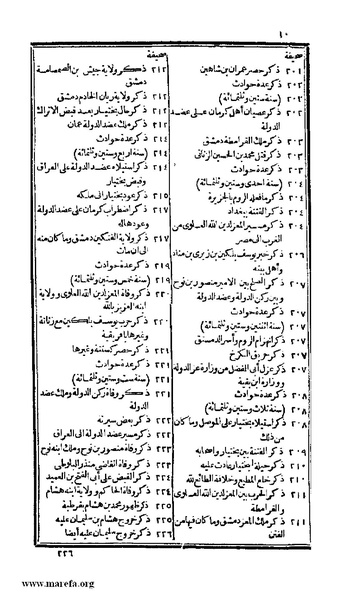 ١٠
صحيفة
٢٠١ ذكر حصر عمران بن شاهين
٢٠٢ ذكر عدة حوادث
٢٠٢ (سنة ستين وثلثمائة)
٢٠٢ ذكر عصيان أهل كرمان على عضد
الدولة
٢٠٣ ذكر ملك القرامطة دمشق
٢٠٣ ذكر قتل محمد بن الحسين الزناتى
٢٠٤ ذكر عدة حوادث
٢٠٤ (سنة احدى وستين وثلثمائة)
٢٠٤ ذكر ما فعله الروم بالجزيرة
٢٠٤ ذكر الفتنة ببغداد
٢٠٤ ذكر مسير المعز لدين الله العلوى من
الغرب الى مصر
٢٠٦ ذكر خبر يوسف بلكين بن زيرى بن مناد
وأهل بيته
٢٠٧ ذكر الصلح بين الامير منصور بن نوح
وبين ركن الدولة وعضد الدولة
٢٠٧ ذكر عدة حوادث
٢٠٧ (سنة اثنتين وستين وثلثمائة)
٢٠٧ ذكر انهزام الروم وأسر الدمستق
٢٠٧ ذكر حريق الكرخ
٢٠٧ ذكر عزل أبى الفضل من وزارة عز الدولة
ووزارة ابن بقية
٢٠٨ ذكر عدة حوادث
٢٠٨ (سنة ثلاث وستين وثلثمائة)
٢٠٨ ذكر استيلاء بختيار على الموصل وما كان
من ذلك
٢٠٩ ذكر الفتنة بين بختيار وأصحابه
٢١٠ ذكر حيلة لبختيار عادت عليه
٢١٠ ذكر خلع المطيع وخلافة الطائع لله
٢١٠ ذكر الحرب بين المعز لدين الله العلوى
والقرامطة
٢١١ ذكر ملك المعز دمشق وما كان فيها من
الفتن
صحيفة
٢١٢ ذكر ولاية جيش بن الصمصامة
دمشق
٢١٢ ذكر ولاية ريان الخادم دمشق
٢١٢ ذكر حال بختيار بعد قبض الاتراك
٢١٣ ذكر ملك عضد الدولة عمان
٢١٤ ذكر عدة حوادث
٢١٤ (سنة أربع وستين وثلثمائة)
٢١٤ ذكر استيلاء عضد الدولة على العراق
وقبض بختيار
٢١٥ ذكر عود بختيار الى ملكه
٢١٧ ذكر اضطراب كرمان على عضد الدولة
وعودها له
٢١٧ ذكر ولاية الفتكين دمشق وما كان منه
الى ان مات
٢١٩ ذكر عدة حوادث
٢١٩ (سنة خمس وستين وثلثمائة)
٢٢٠ ذكر وفاة المعز لدين الله العلوى وولاية
ابنه العزيز بالله
٢٢٠ ذكر حرب يوسف بلكين مع زناتة
وغيرها بافريقية
٢٢١ ذكر حصر كسنتة وغيرها
٢٢١ ذكر عدة حوادث
٢٢١ (سنة ست وستين وثلثمائة)
٢٢١ ذكر وفاة ركن الدولة وملك عضد
الدولة
٢٢٢ ذكر بعض سيرته
٢٢٢ ذكر مسير عضد الدولة الى العراق
٢٢٣ ذكر وفاة منصور بن نوح وملك ابنه نوح
٢٢٣ ذكر وفاة القاضى منذر البلوطى
٢٢٤ ذكر القبض على أبى الفتح بن العميد
٢٢٤ ذكر وفاة الحاكم وولاية ابنه هشام
٢٢٥ ذكر ظهور محمد بن هشام بقرطبة
٢٢٥ ذكر خروج هشام بن سليمان عليه
٢٢٦ ذكر خروج سليمان عليه أيضا
٢٢٦
www.marefa.org